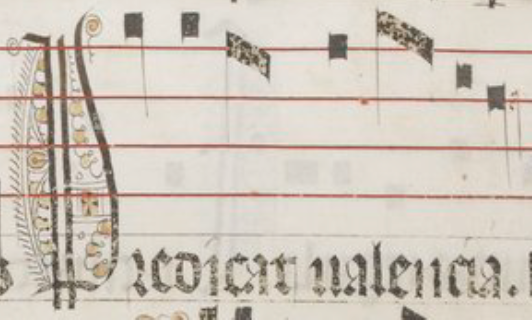 s Predicat ualencia.